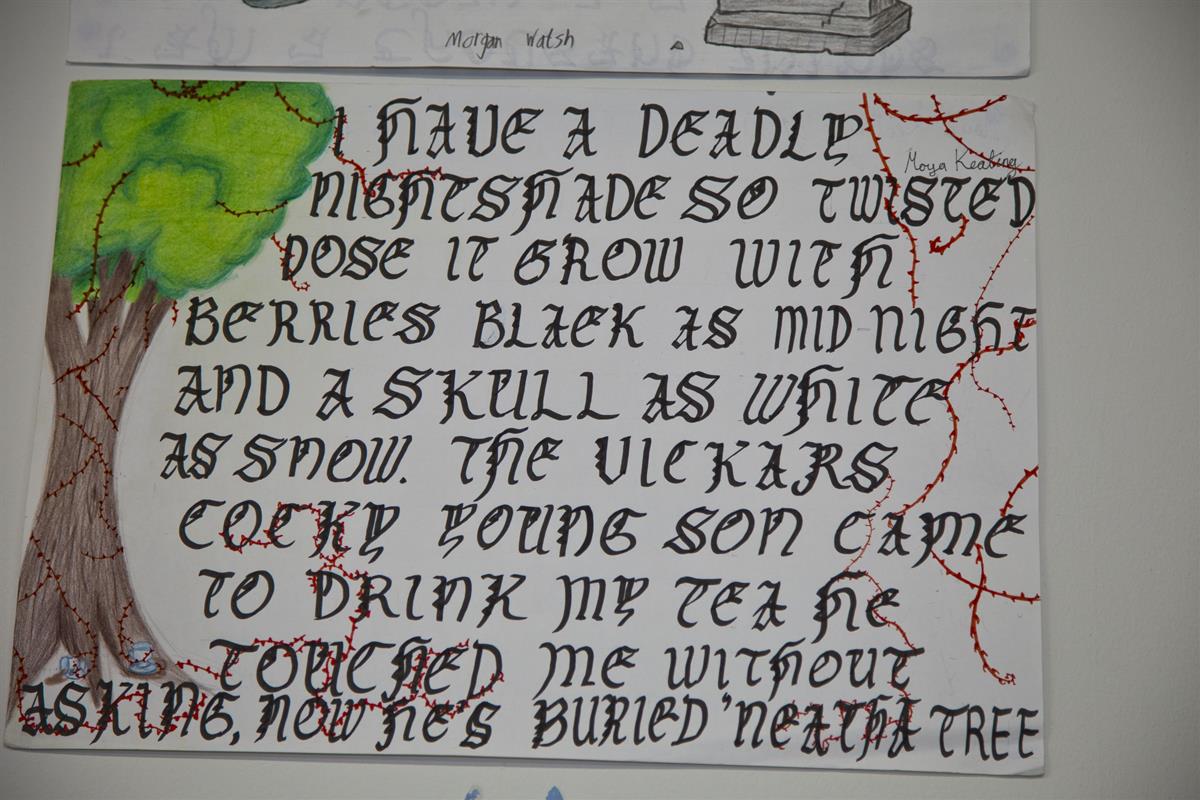 Morgan Watsh
I HAVE A DEADLY
Moya Keating
NIGHTSHADE SO TWISTED
DOSE IT GROW WITH
BERRIES BLACK AS MID-NIGHT
AND A SKULL AS WHITE
AS SNOW. THE VICKARS
COCKY YOUNG SON CAME
TO DRINK MY TEA HE
TOUCHED ME WITHOUT
ASKING, NOW HE'S BURIED 'NEATH A TREE